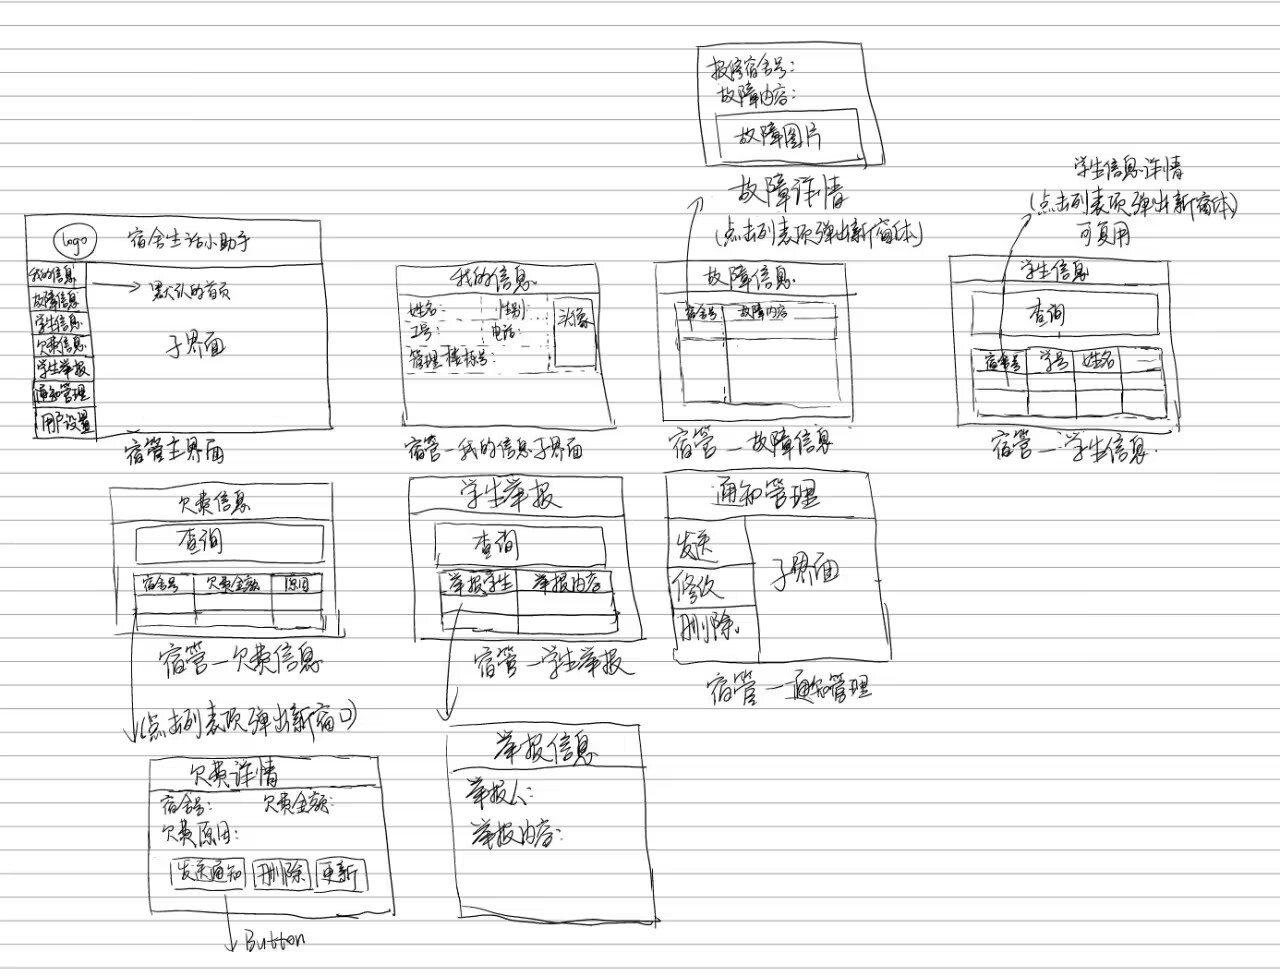 报修宿舍号：
故障内容：
故障图片
故障详情
(点击列表项弹出新窗体)
学生信息详情
(点击列表项弹出新窗体)
可复用
logo 宿舍生活小助手
我的信息
故障信息
学生信息
欠费信息
学生举报
通知管理
用户设置
默认的首页
子界面
宿管主界面
我的信息
姓名： 性别：
工号： 电话：
管理楼栋号：
头像
宿管—我的信息子界面
故障信息
宿舍号 故障内容
宿管—故障信息
学生信息
查询
宿舍号 学号 姓名
宿管—学生信息
欠费信息
查询
宿舍号 欠费金额 原因
宿管—欠费信息
(点击列表项弹出新窗口)
学生举报
查询
举报学生 举报内容
宿管—学生举报
通知管理
发送
修改
删除
子界面
宿管—通知管理
欠费详情
宿舍号： 欠费金额：
欠费原因：
发送通知 删除 更新
Button
举报信息
举报人：
举报内容：